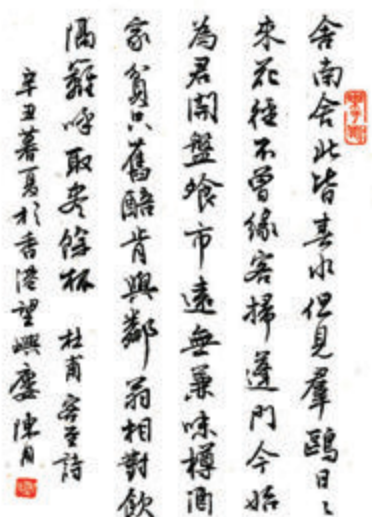 舍南舍北皆春水但見羣鷗日〻
來花徑不曾緣客掃蓬門今始
為君開盤飧市遠無兼味樽酒
家貧只舊醅肯與鄰翁相對飲
隔籬呼取盡餘杯 杜甫客至詩
辛丑暮夏於香港望嶼廬 陳月